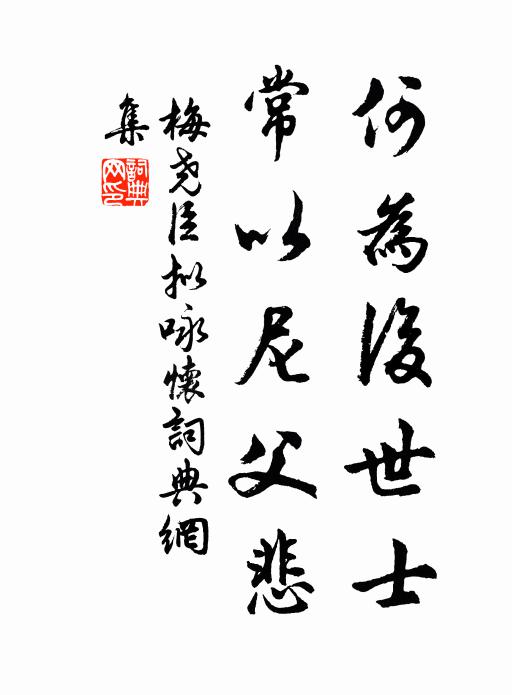 何為後世士
常以尼父悲
梅尧臣拟咏懷詞典網
集
詞典網印